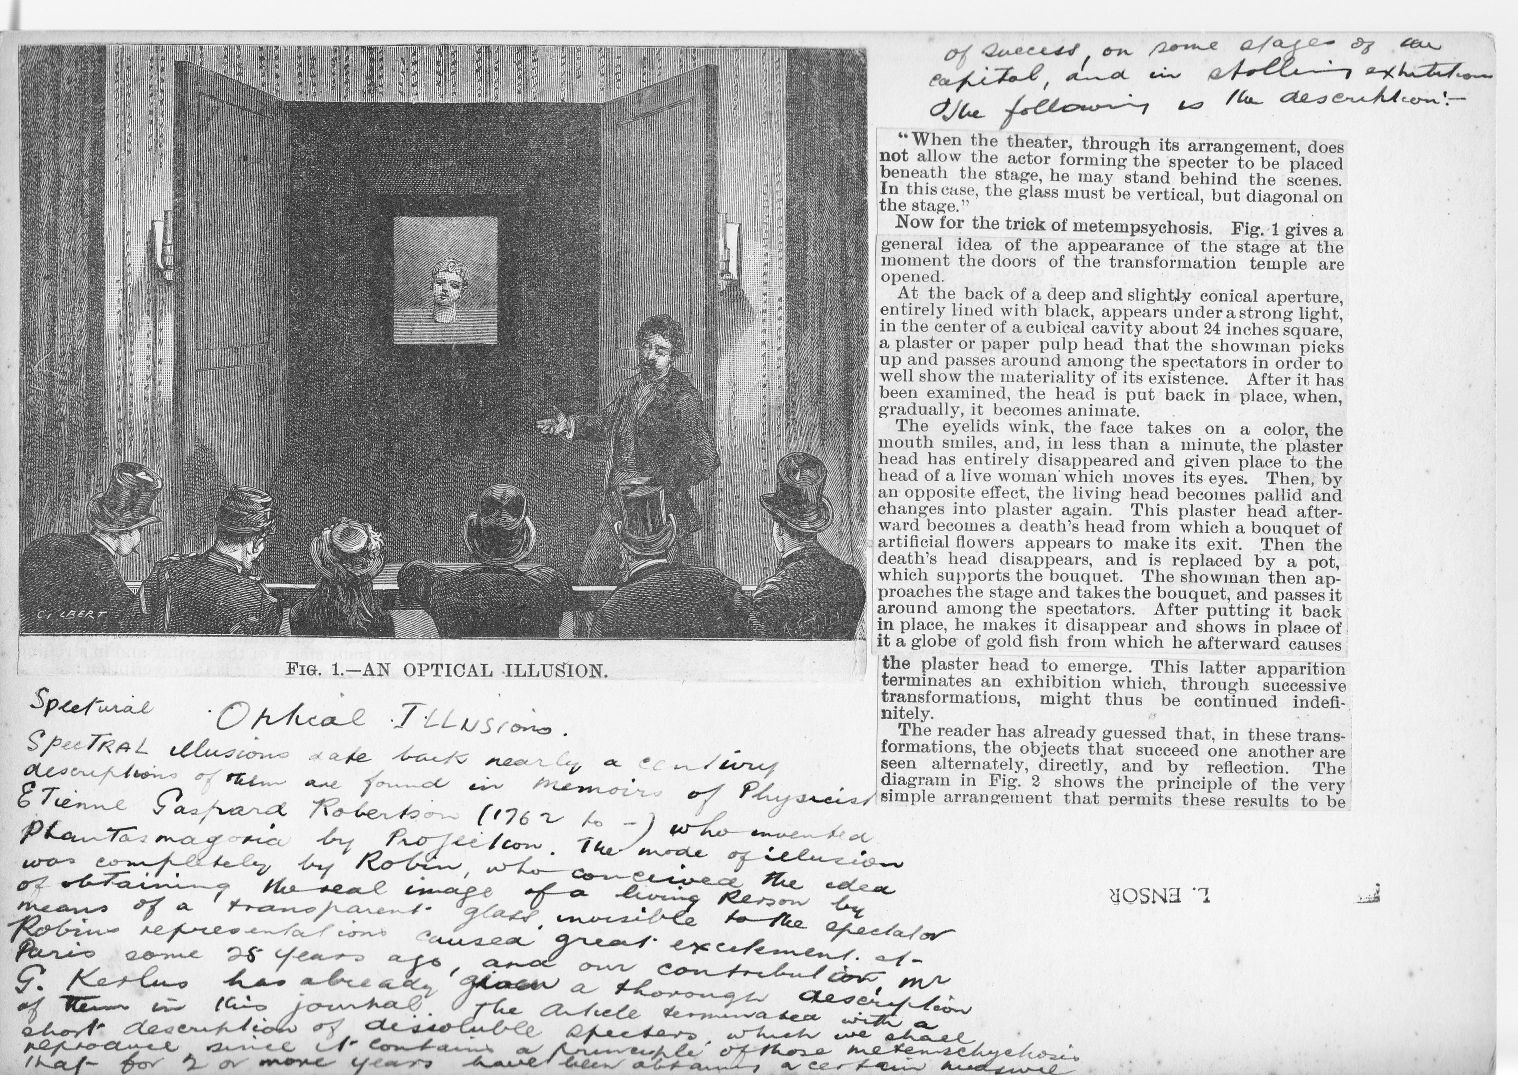 FIG. 1.—AN OPTICAL ILLUSION.
Spectural Optical ILLusions.
SpecTRAL illusions date back nearly a century
descriptions of them are found in memoirs of Physicist
ETienne Gaspard Robertson (1762 to -) who invented
PhanTasmagoria by Projection. The mode of illusion
was completely by Robin, who conceived the idea
of obtaining the real image of a living person by
means of a transparent glass, invisible to the spectator
Robins representations caused great excitement at
Paris some 25 years ago, and our contribution, mr
G. Kerlus has already given a thorough description
of them in this journal. The Article terminated with a
short description of dissoluble specters, which we shall
reproduce since it contains a principle of those metemschychosis
that for 2 or more years have been obtaining a certain
of success, on some stages of the
capital, and in strolling exhibitions
The following is the description:—
"When the theater, through its arrangement, does
not allow the actor forming the specter to be placed
beneath the stage, he may stand behind the scenes.
In this case, the glass must be vertical, but diagonal on
the stage."
Now for the trick of metempsychosis. Fig. 1 gives a
general idea of the appearance of the stage at the
moment the doors of the transformation temple are
opened.
At the back of a deep and slightly conical aperture,
entirely lined with black, appears under a strong light,
in the center of a cubical cavity about 24 inches square,
a plaster or paper pulp head that the showman picks
up and passes around among the spectators in order to
well show the materiality of its existence. After it has
been examined, the head is put back in place, when,
gradually, it becomes animate.
The eyelids wink, the face takes on a color, the
mouth smiles, and, in less than a minute, the plaster
head has entirely disappeared and given place to the
head of a live woman which moves its eyes. Then, by
an opposite effect, the living head becomes pallid and
changes into plaster again. This plaster head after-
ward becomes a death's head from which a bouquet of
artificial flowers appears to make its exit. Then the
death's head disappears, and is replaced by a pot,
which supports the bouquet. The showman then ap-
proaches the stage and takes the bouquet, and passes it
around among the spectators. After putting it back
in place, he makes it disappear and shows in place of
it a globe of gold fish from which he afterward causes
the plaster head to emerge. This latter apparition
terminates an exhibition which, through successive
transformations, might thus be continued indefi-
nitely.
The reader has already guessed that, in these trans-
formations, the objects that succeed one another are
seen alternately, directly, and by reflection. The
diagram in Fig. 2 shows the principle of the very
simple arrangement that permits these results to be
L. ENSOR